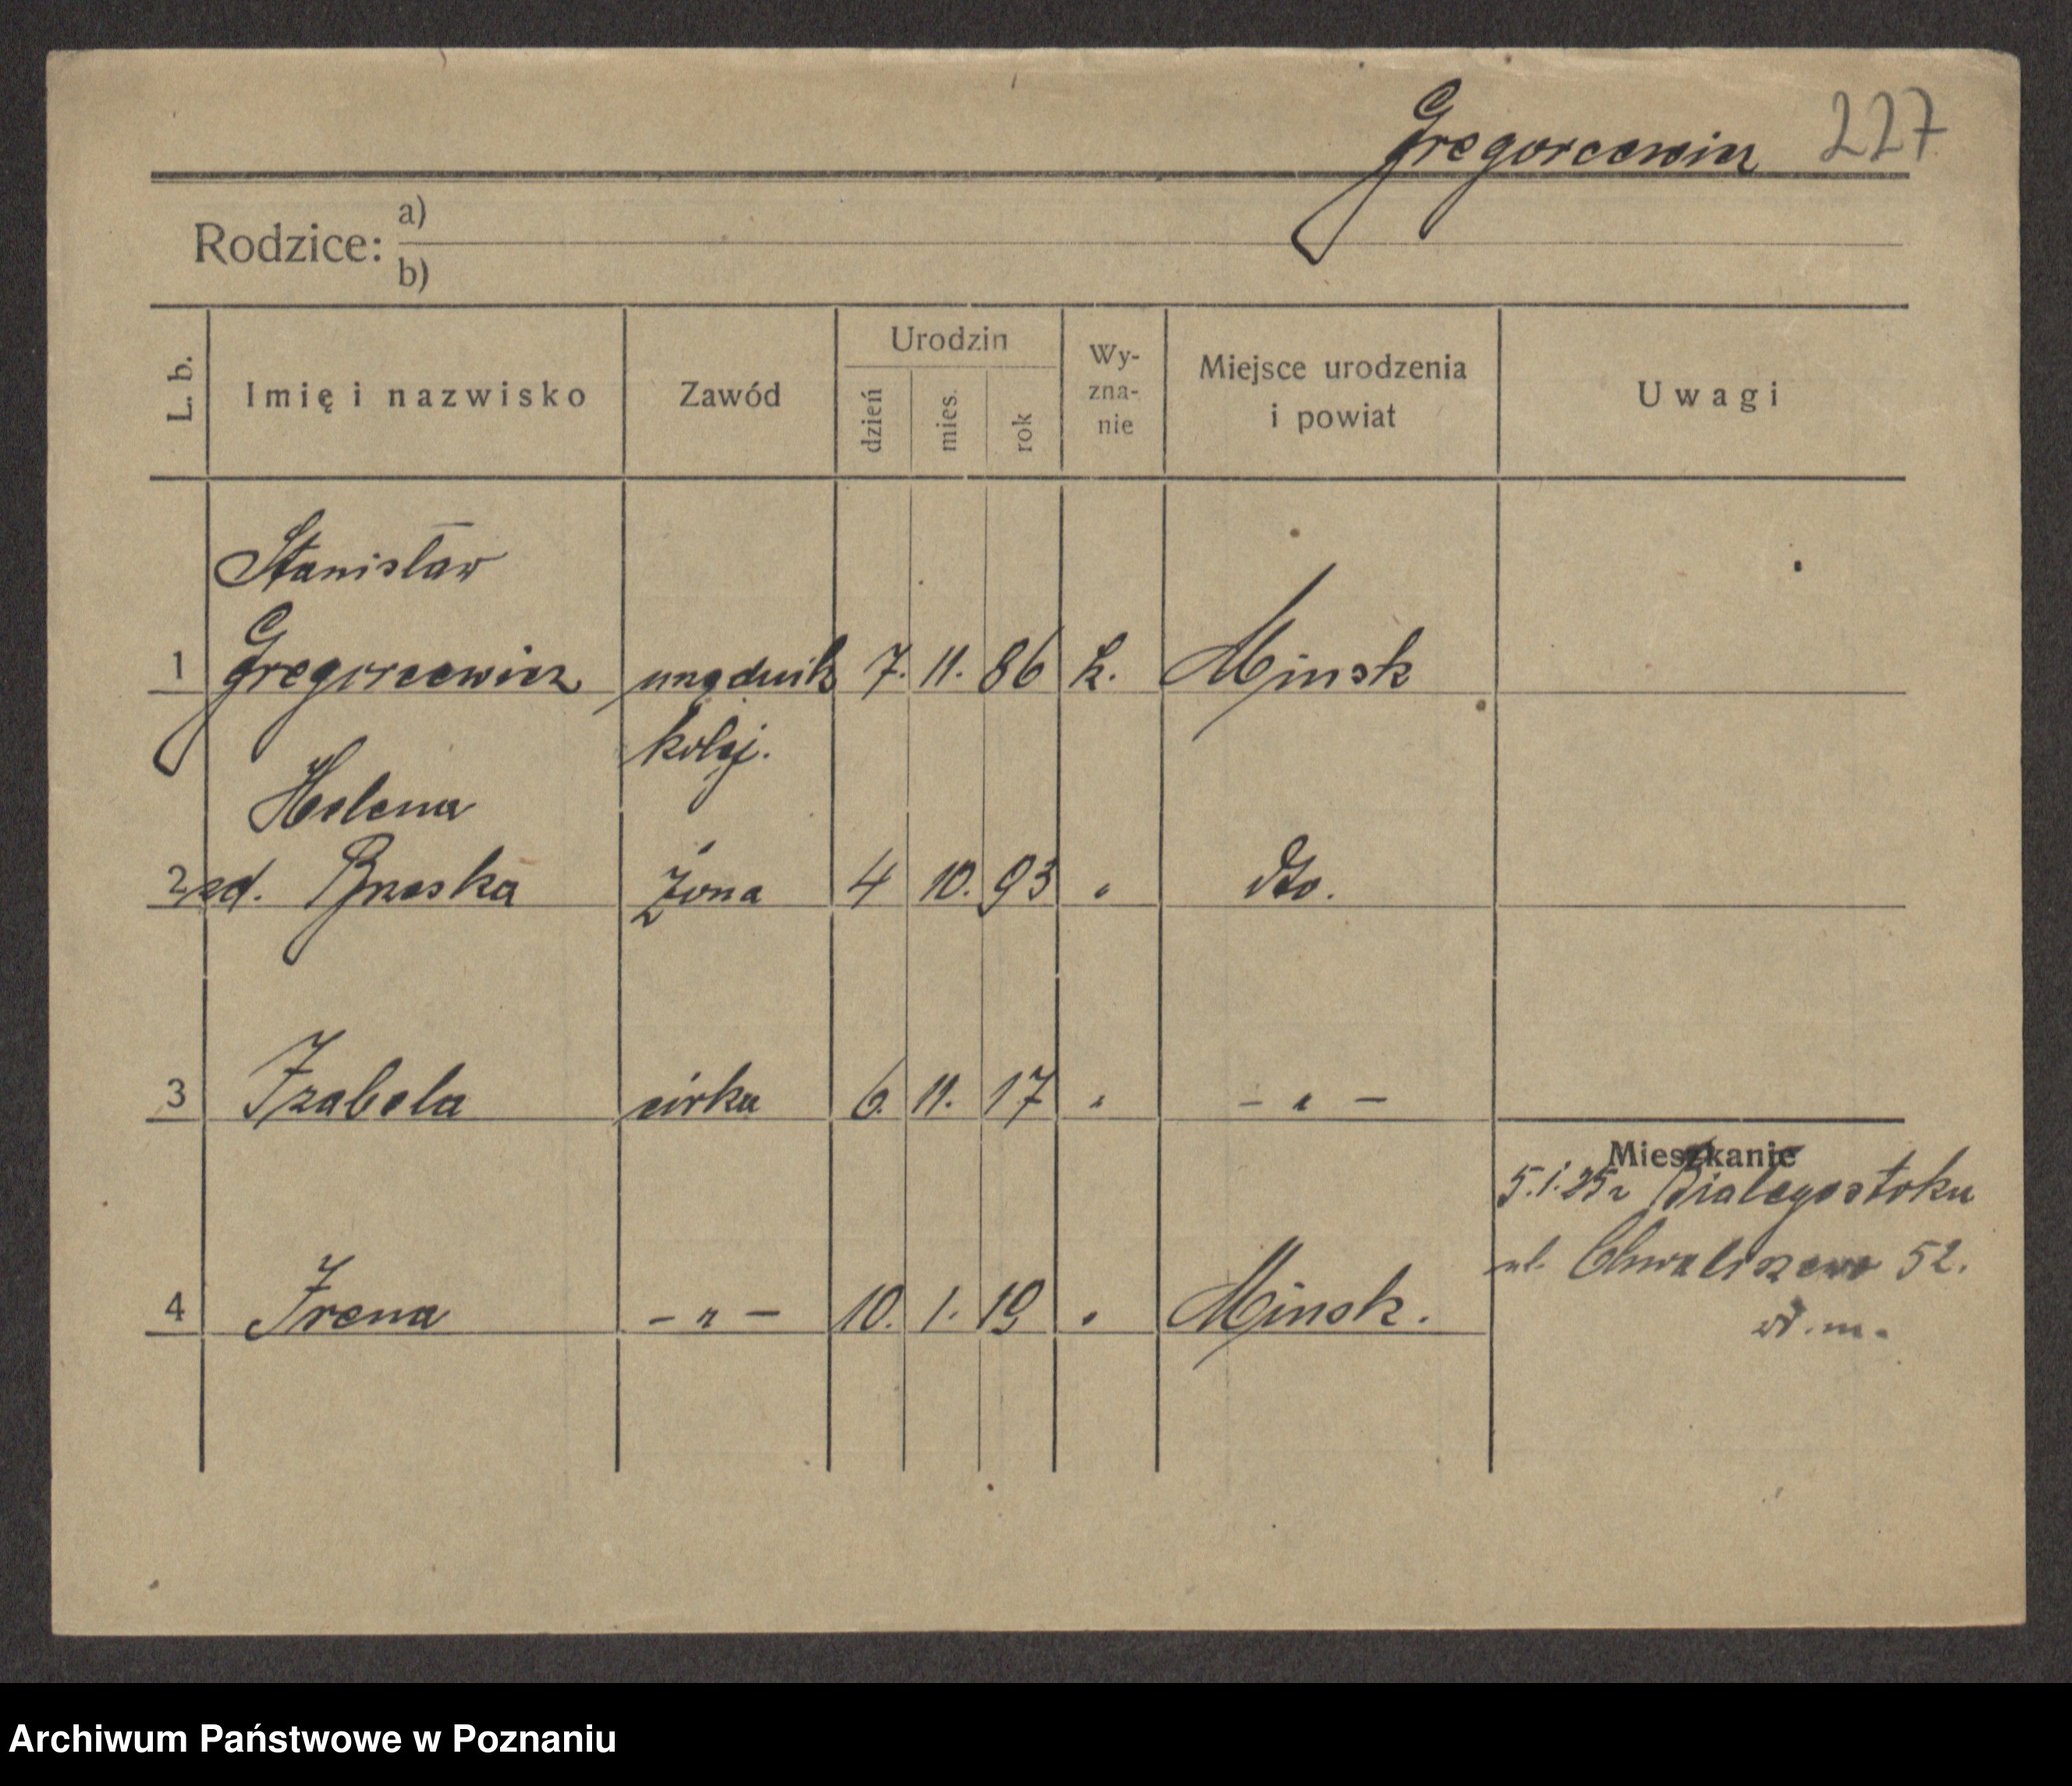 Gregorcewicz 227
Rodzice: a)
b)
L. b.
Imię i nazwisko
Zawód
Urodzin
dzień
mies.
rok
Wy-
zna-
nie
Miejsce urodzenia
i powiat
Uwagi
Stanisław
1 Gregorcewicz urzędnik 7. 11. 86 k. Minsk
kolej.
Helena
2 zd. Brzeska żona 4 10. 93 " dto.
3 Izabela córka 6. 11. 17 " - " -
Mieszkanie
5.1.25 z Białegostoku
4 Irena - " - 10. 1. 19 " Minsk.
ul. Chwaliszewo 52.
w. m.
Archiwum Państwowe w Poznaniu